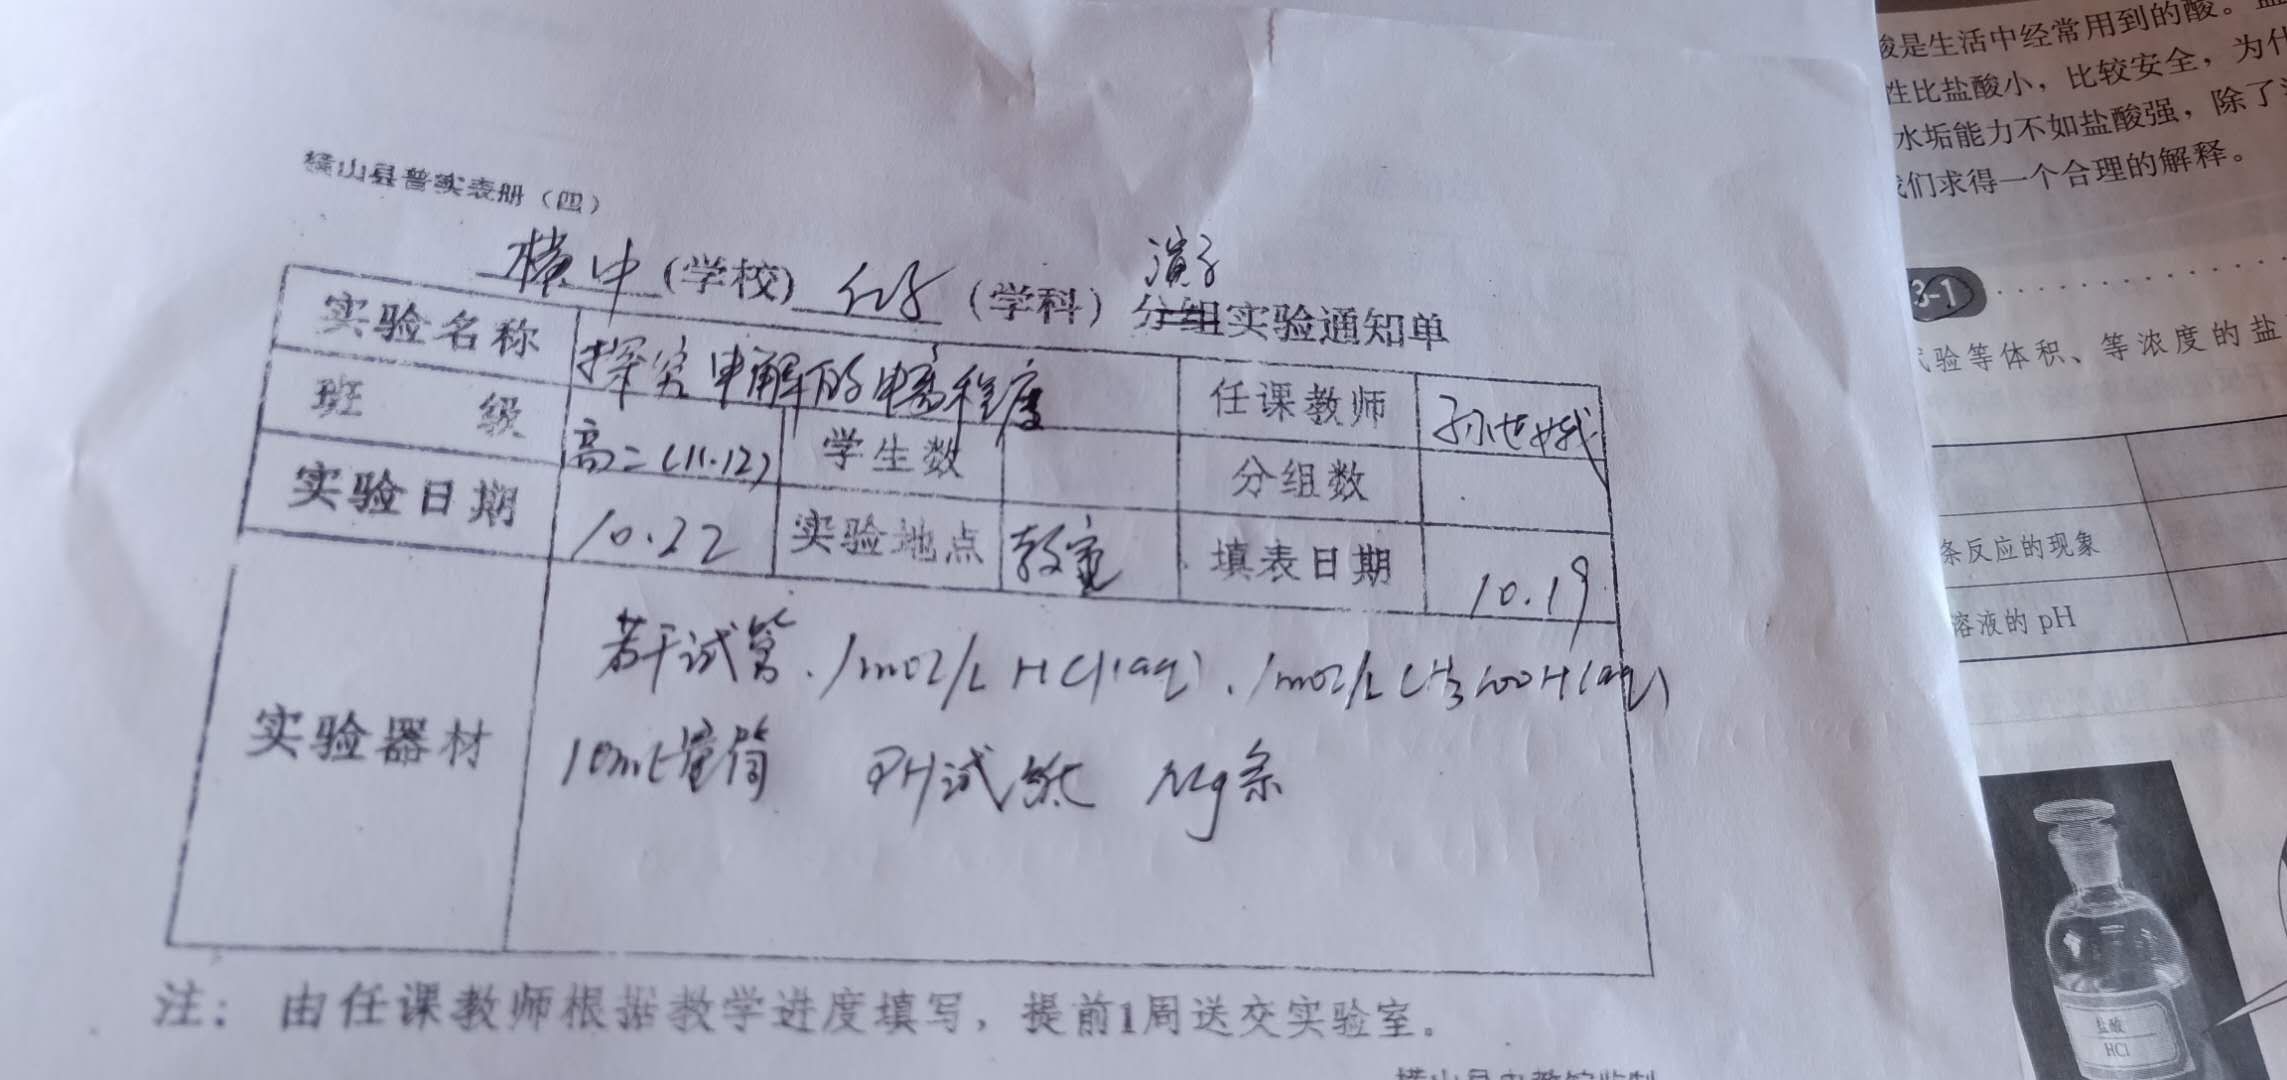 横山县普实表册（四）
横中（学校）化学（学科）演示分组实验通知单
实验名称 探究电解的电离程度 任课教师 孙世娥
班 级 高二（11.12） 学生数 分组数
实验日期 10.22 实验地点 教室 填表日期 10.19
实验器材
若干试管、1mol/L HCl(aq)、1mol/L CH3COOH(aq)
10mL量筒 PH试纸 Mg条
注：由任课教师根据教学进度填写，提前1周送交实验室。
酸是生活中经常用到的酸。
性比盐酸小，比较安全，为什
水垢能力不如盐酸强，除了
我们求得一个合理的解释。
3-1
试验等体积、等浓度的盐
条反应的现象
溶液的 pH
盐酸
HCl